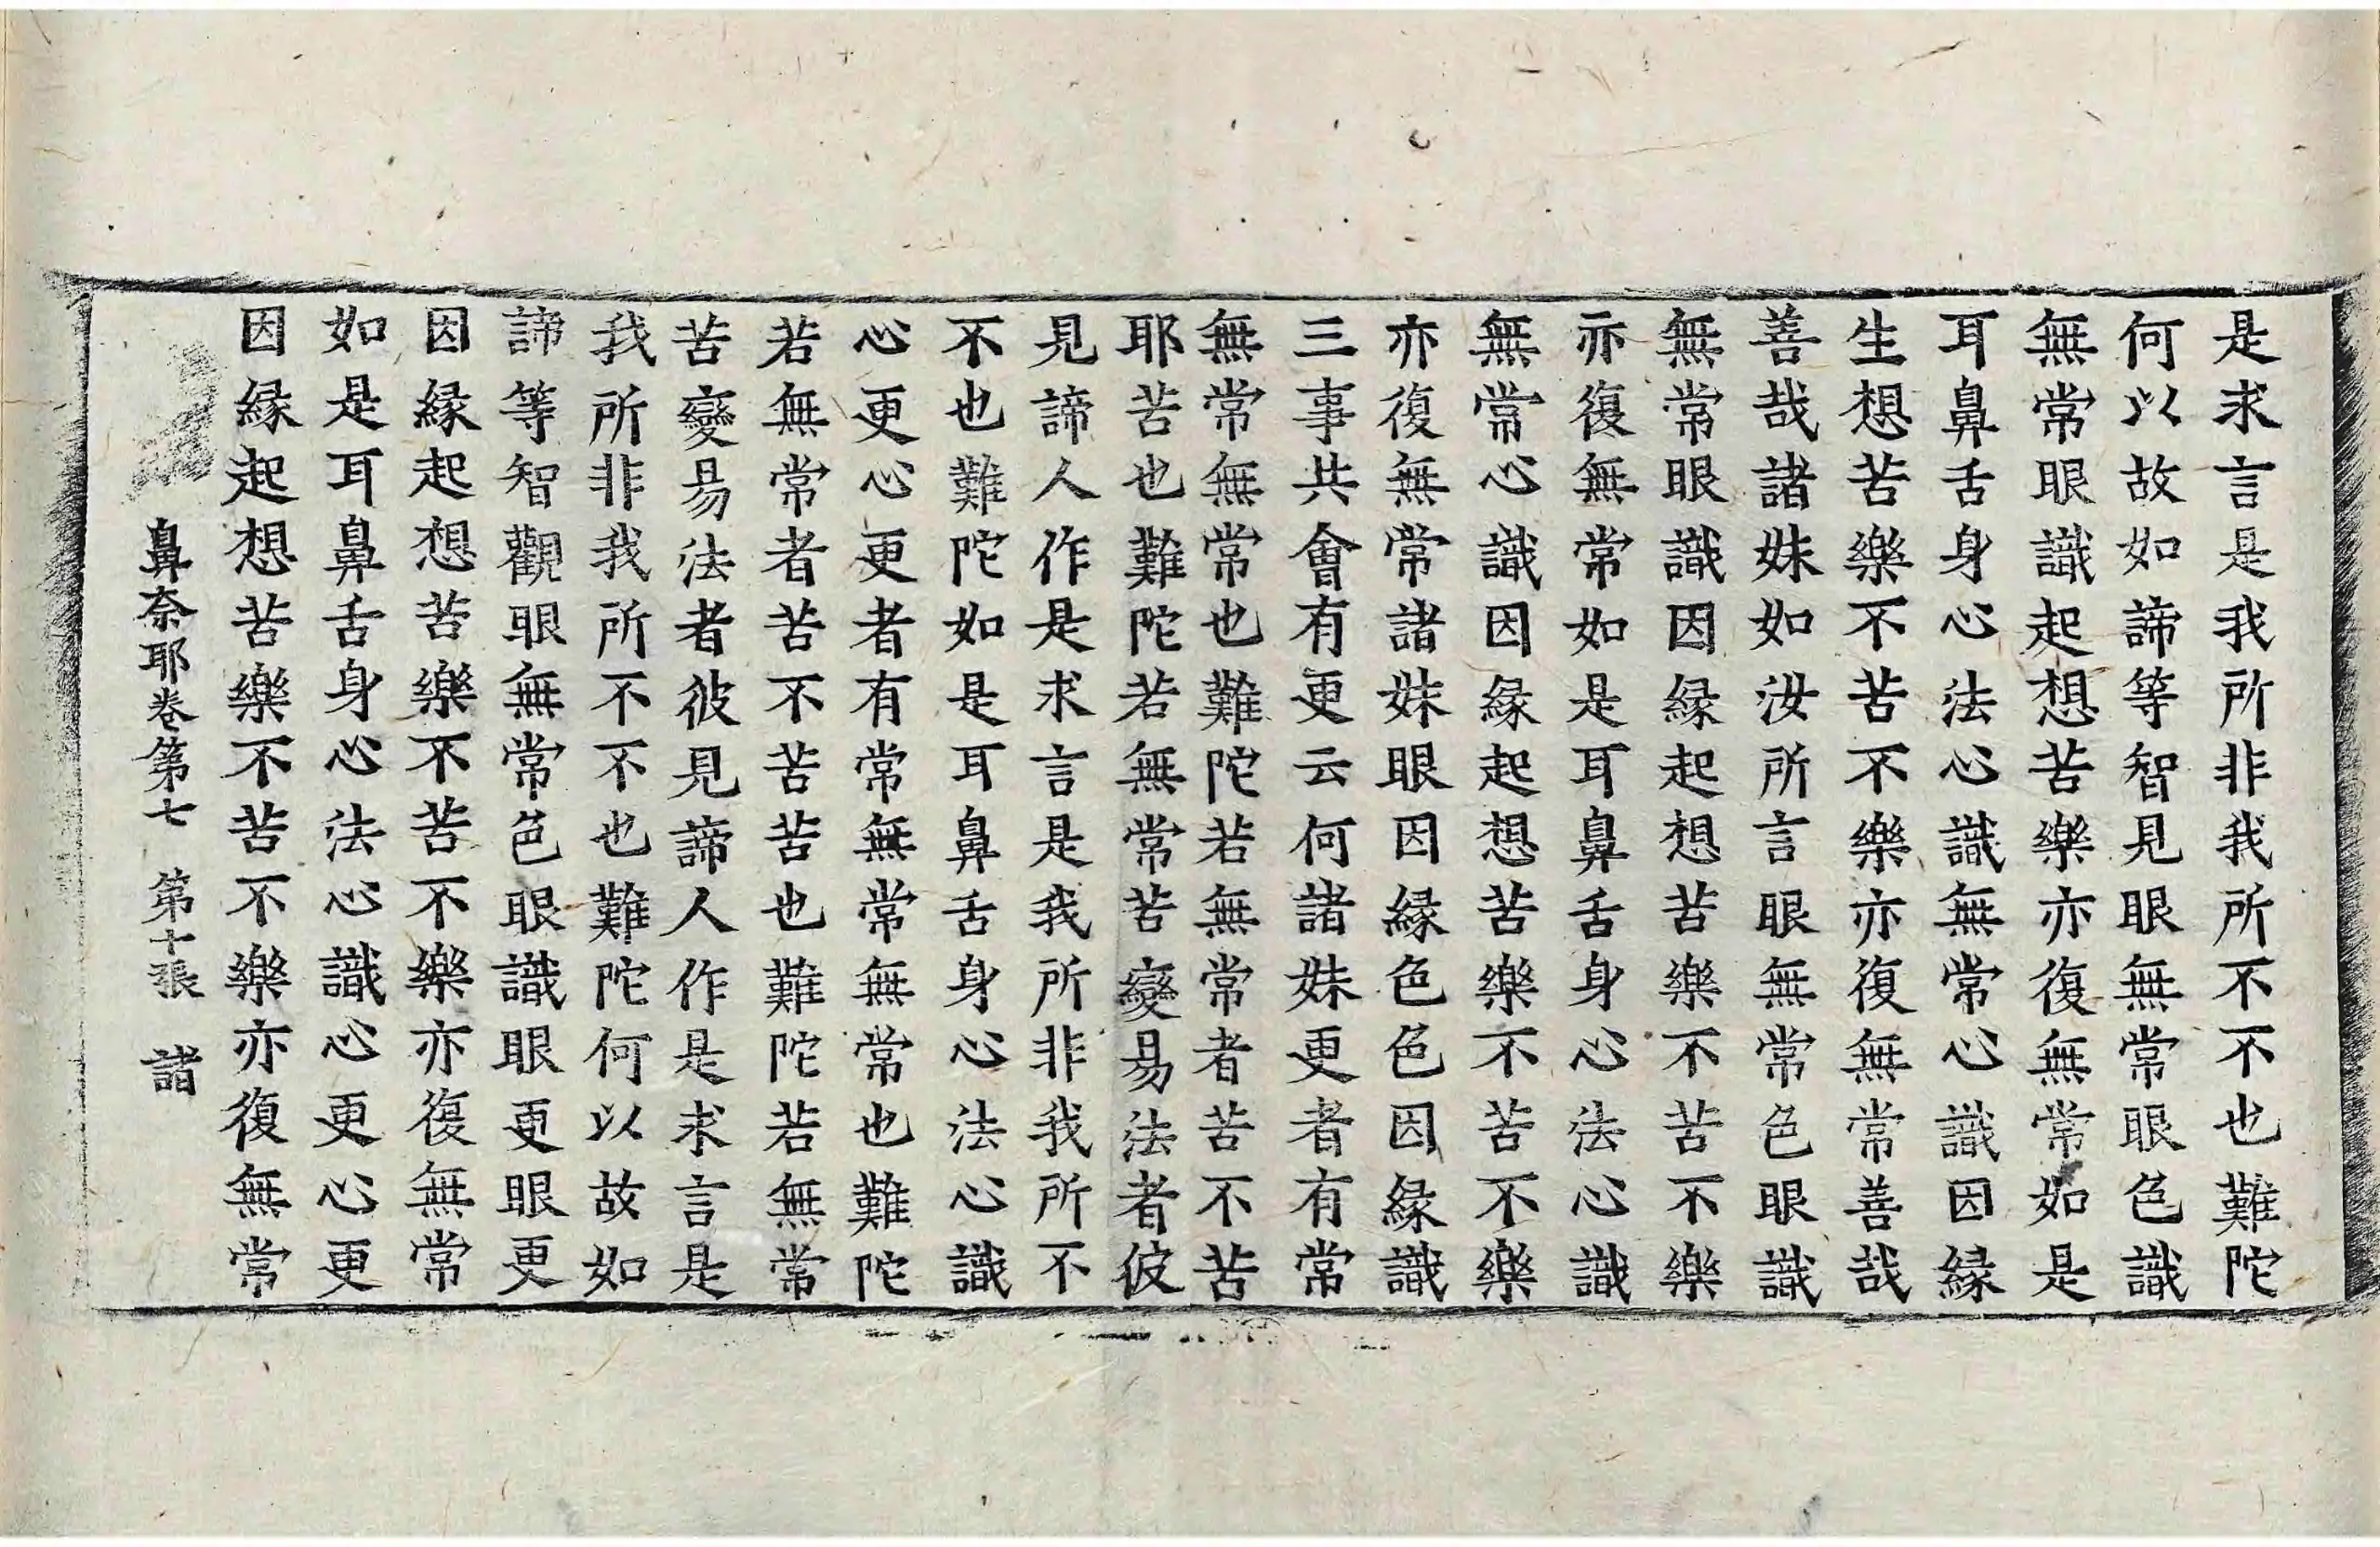 是求言是我所非我所不不也難陀
何以故如諦等智見眼無常眼色識
無常眼識起想苦樂亦復無常如是
耳鼻舌身心法心識無常心識因緣
生想苦樂不苦不樂亦復無常善哉
善哉諸妹如汝所言眼無常色眼識
無常眼識因緣起想苦樂不苦不樂
亦復無常如是耳鼻舌身心法心識
無常心識因緣起想苦樂不苦不樂
亦復無常諸妹眼因緣色色因緣識
三事共會有更云何諸妹更者有常
無常無常也難陀若無常者苦不苦
耶苦也難陀若無常苦變易法者彼
見諦人作是求言是我所非我所不
不也難陀如是耳鼻舌身心法心識
心更心更者有常無常無常也難陀
若無常者苦不苦苦也難陀若無常
苦變易法者彼見諦人作是求言是
我所非我所不不也難陀何以故如
諦等智觀眼無常色眼識眼更眼更
因緣起想苦樂不苦不樂亦復無常
如是耳鼻舌身心法心識心更心更
因緣起想苦樂不苦不樂亦復無常
鼻奈耶卷第七 第十張 諸